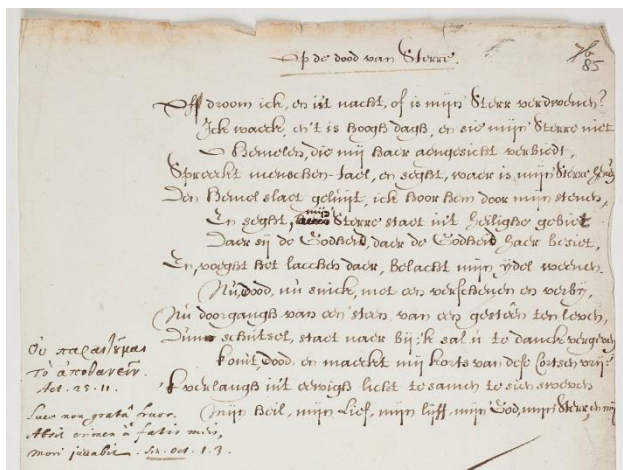 Op de dood van Sterre.
7b
85
Off droom ick, en ist nacht, of is mijn Sterr verdwenen?
Ick waeck, en 't is hoogh dagh, en sie mijn Sterre niet.
O Hemelen, die mij haer aengesicht verbiedt,
Spreeckt menschen-tael, en seght, waer is mijn Sterre henen?
Den Hemel slaet geluijt, ick hoor hem door mijn stenen,
En seght, mijn Sterre staet in't heilighe gebiet
Daer sij de Godheid, daer de Godheid haer besiet,
En, voeght het lacchen daer, belacht mijn ijdel weenen.
Nu, dood, nu snick, met een verschenen en verbij,
Nu doorgangh van een steen van een gesteen ten leven,
Dunn schutsel, staet naer bij; 'k sal u te danck vergeven
Komt, dood, en maeckt mij korts van dese Cortsen vrij:
'k verlangh in't eewigh licht te samen te sien sweven
Mijn heil, mijn Lief, mijn lijff, mijn God, mijn Sterr, en mij
Οὐ παραιτοῦμαι
τὸ ἀποθανεῖν.
Act. 25. 11.
Luce non gratâ fruor.
Absit crimen à fatis meis,
mori juvabit. Sen. Oct. 1. 3.